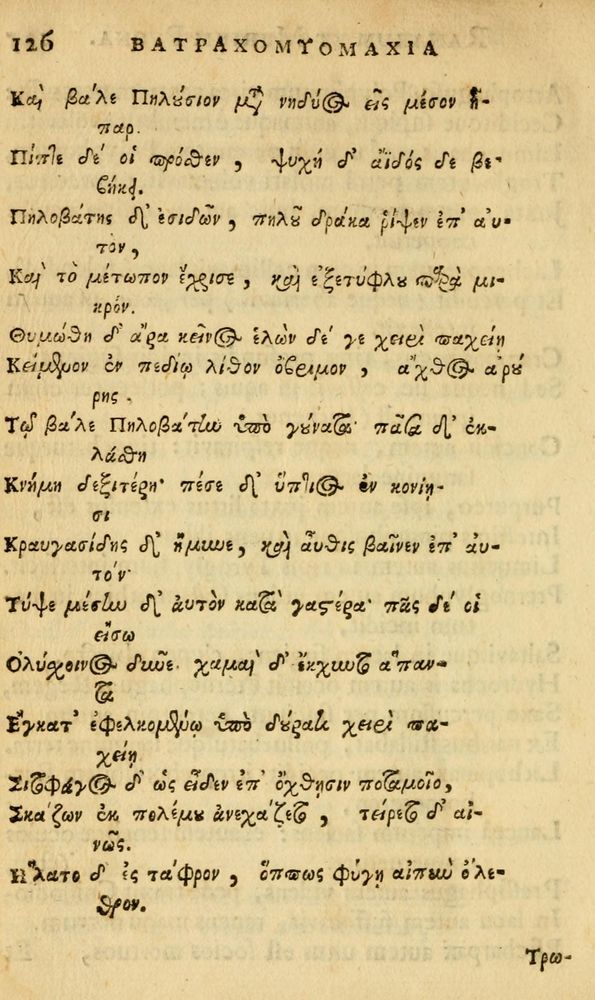 126 ΒΑΤΡΑΧΟΜΥΟΜΑΧΙΑ
Καὶ βάλε Πηλούσιον μτ̃ νηδύος εἰς μέσον ἧ-
παρ.
Πίπτε δέ οἱ πρόσθεν, ψυχή δ' ἀϊδός δε βε-
βήκει.
Πηλοβάτης δ' ἐσιδὼν, πηλοῦ δράκα ῥίψεν ἐπ' αυ-
τὸν,
Καὶ τὸ μέτωπον ἔχρισε, καὶ ἐξετύφλου παρὰ μι-
κρόν.
Θυμώθη δ' ἄρα κεῖνος ἑλὼν δέ γε χειρὶ παχείη
Κείμενον ἐν πεδίῳ λίθον ὄβριμον, ἄχθος ἀρού
ρης.
Τῷ βάλε Πηλοβάτην ὑπὸ γούνατα· πᾶσα δ' ἐκ-
λάσθη
Κνήμη δεξιτέρη· πέσε δ' ὕπτιος ἐν κονίη-
σι
Κραυγασίδης δ' ἤμυνε, καὶ αὖθις βαῖνεν ἐπ' αυ-
τόν·
Τύψε μέσην δ' αὐτὸν κατὰ γαστέρα· πᾶς δέ οἱ
εἴσω
Ὀξύσχοινος δῦνε χαμαὶ δ' ἔκχυντο ἅπαν-
τα
Ἔγκατ' ἐφελκομένῳ ὑπὸ δούρατι χειρὶ πα-
χείῃ
Σιτοφάγος δ' ὡς εἶδεν ἐπ' ὄχθησιν ποταμοῖο,
Σκάζων ἐκ πολέμου ἀνεχάζετο, τείρετο δ' αἰ-
νῶς.
Ἥλατο δ' ἐς τάφρον, ὅππως φύγῃ αἰπὺν ὄλε-
θρον.
Τρω-